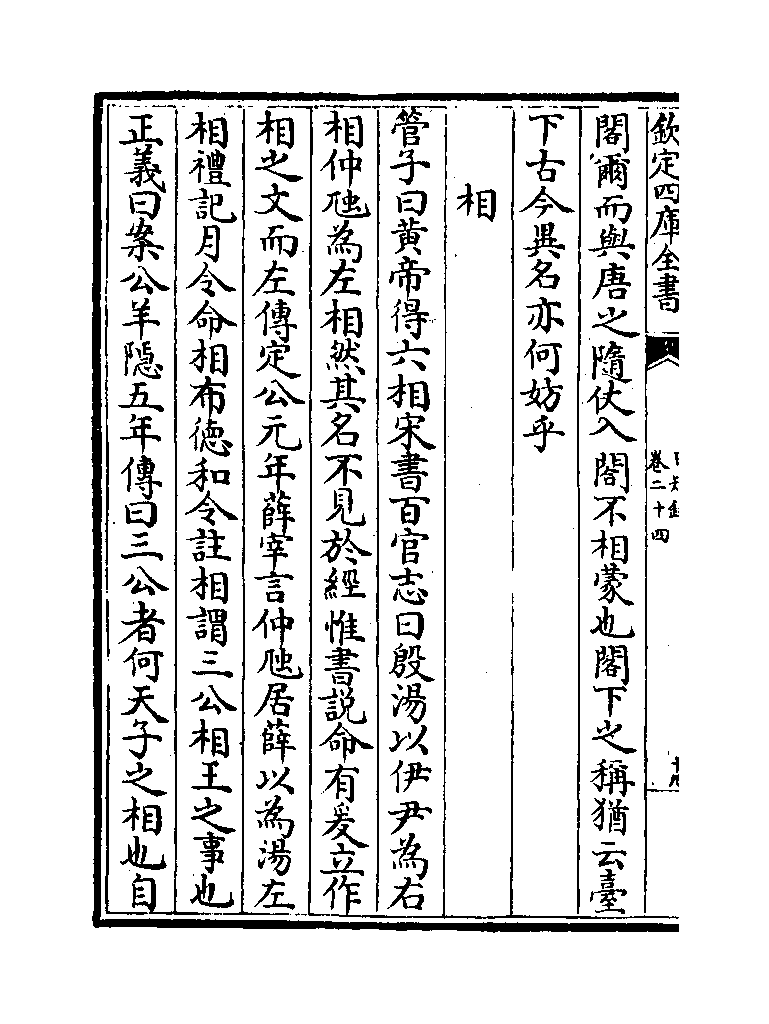 欽定四庫全書
卷二十四
閣爾而與唐之隨仗入閤不相蒙也閣下之稱猶云臺
下古今異名亦何妨乎
相
管子曰黃帝得六相宋書百官志曰殷湯以伊尹為右
相仲虺為左相然其名不見於經惟書說命有爰立作
相之文而左傳定公元年薛宰言仲虺居薛以為湯左
相禮記月令命相布德和令註相謂三公相王之事也
正義曰案公羊隱五年傳曰三公者何天子之相也自